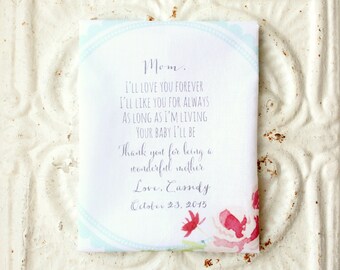 Mom,
I'll love you forever
I'll like you for always
As long as I'm living
Your baby I'll be
Thank you for being a
wonderful mother
Love, Cassidy
October 23, 2015